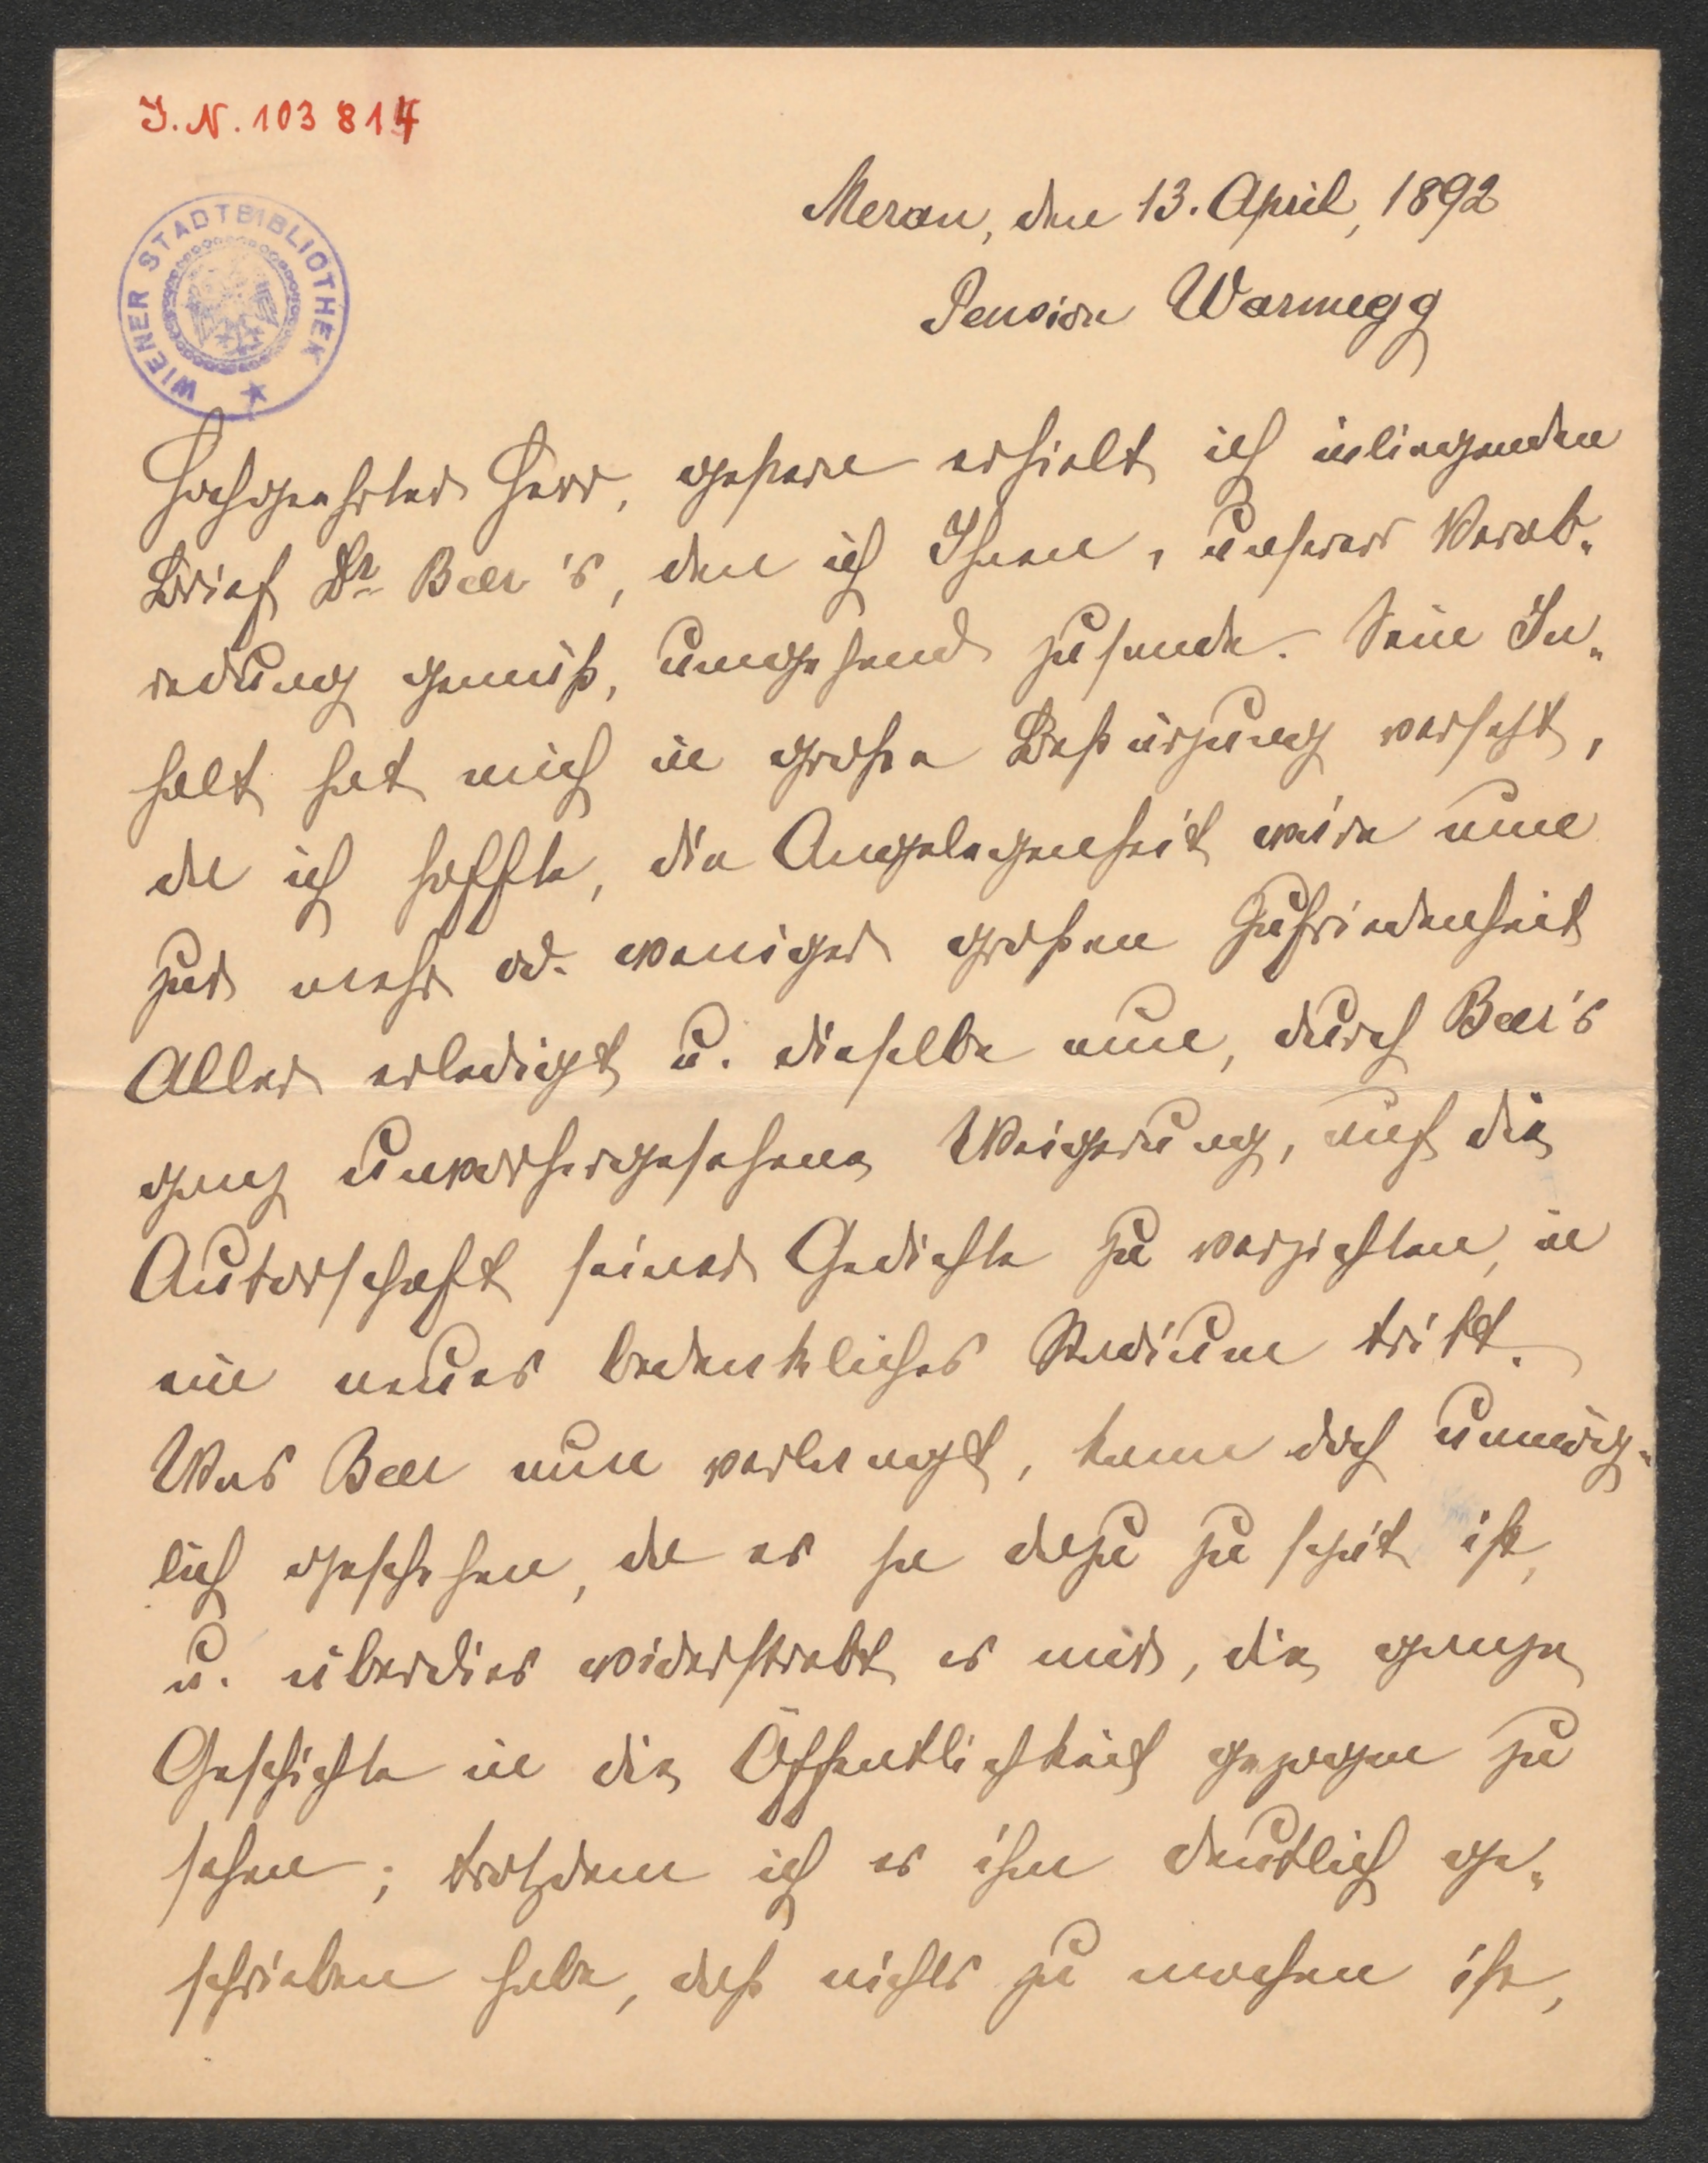 I.N. 103 814
WIENER STADTBIBLIOTHEK
Meran, den 13. April, 1892
Pension Warmegg
Hochgeehrter Herr, gestern erhielt ich inliegenden
Brief Dr Beer's, den ich Ihnen, unserer Verab-
redung gemäß, umgehend zusende. Sein In-
halt hat mich in große Bestürzung versetzt,
da ich hoffte, die Angelegenheit wäre nun
zur mehr od. weniger großen Zufriedenheit
Aller erledigt u. dieselbe nun, durch Beer's
ganz unvorhergesehene Weigerung, auf die
Autorschaft seiner Gedichte zu verzichten, in
ein neues bedenkliches Stadium tritt.
Was Beer nun verlangt, kann doch unmög-
lich geschehen, da es ja dazu zu spät ist,
u. überdies widerstrebt es mir, die ganze
Geschichte in die Öffentlichkeit gezogen zu
sehen; trotzdem ich es ihm deutlich ge-
schrieben habe, daß nichts zu machen ist,